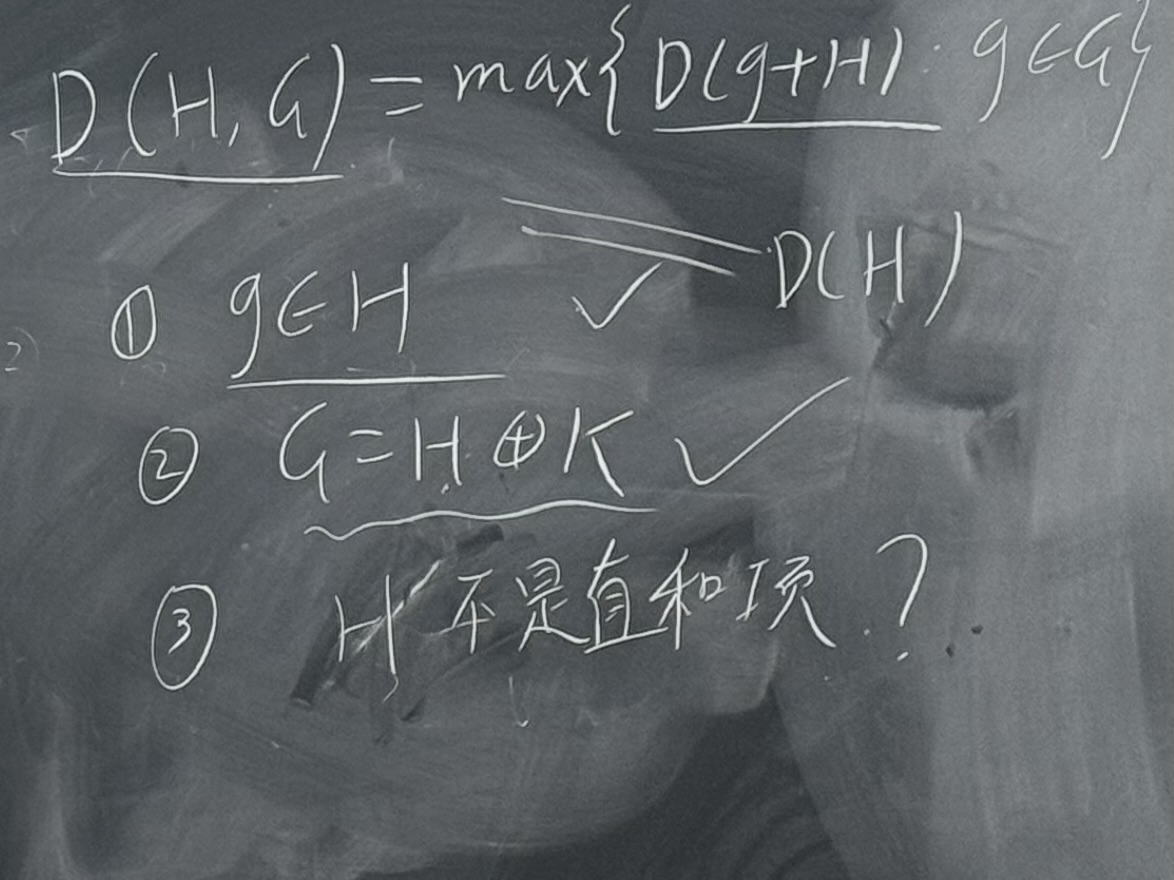 D(H,G) = max{D(g+H) : g∈G}
D(H)
① g∈H ✓
② G=H⊕K ✓
③ H 不是直和项 ?